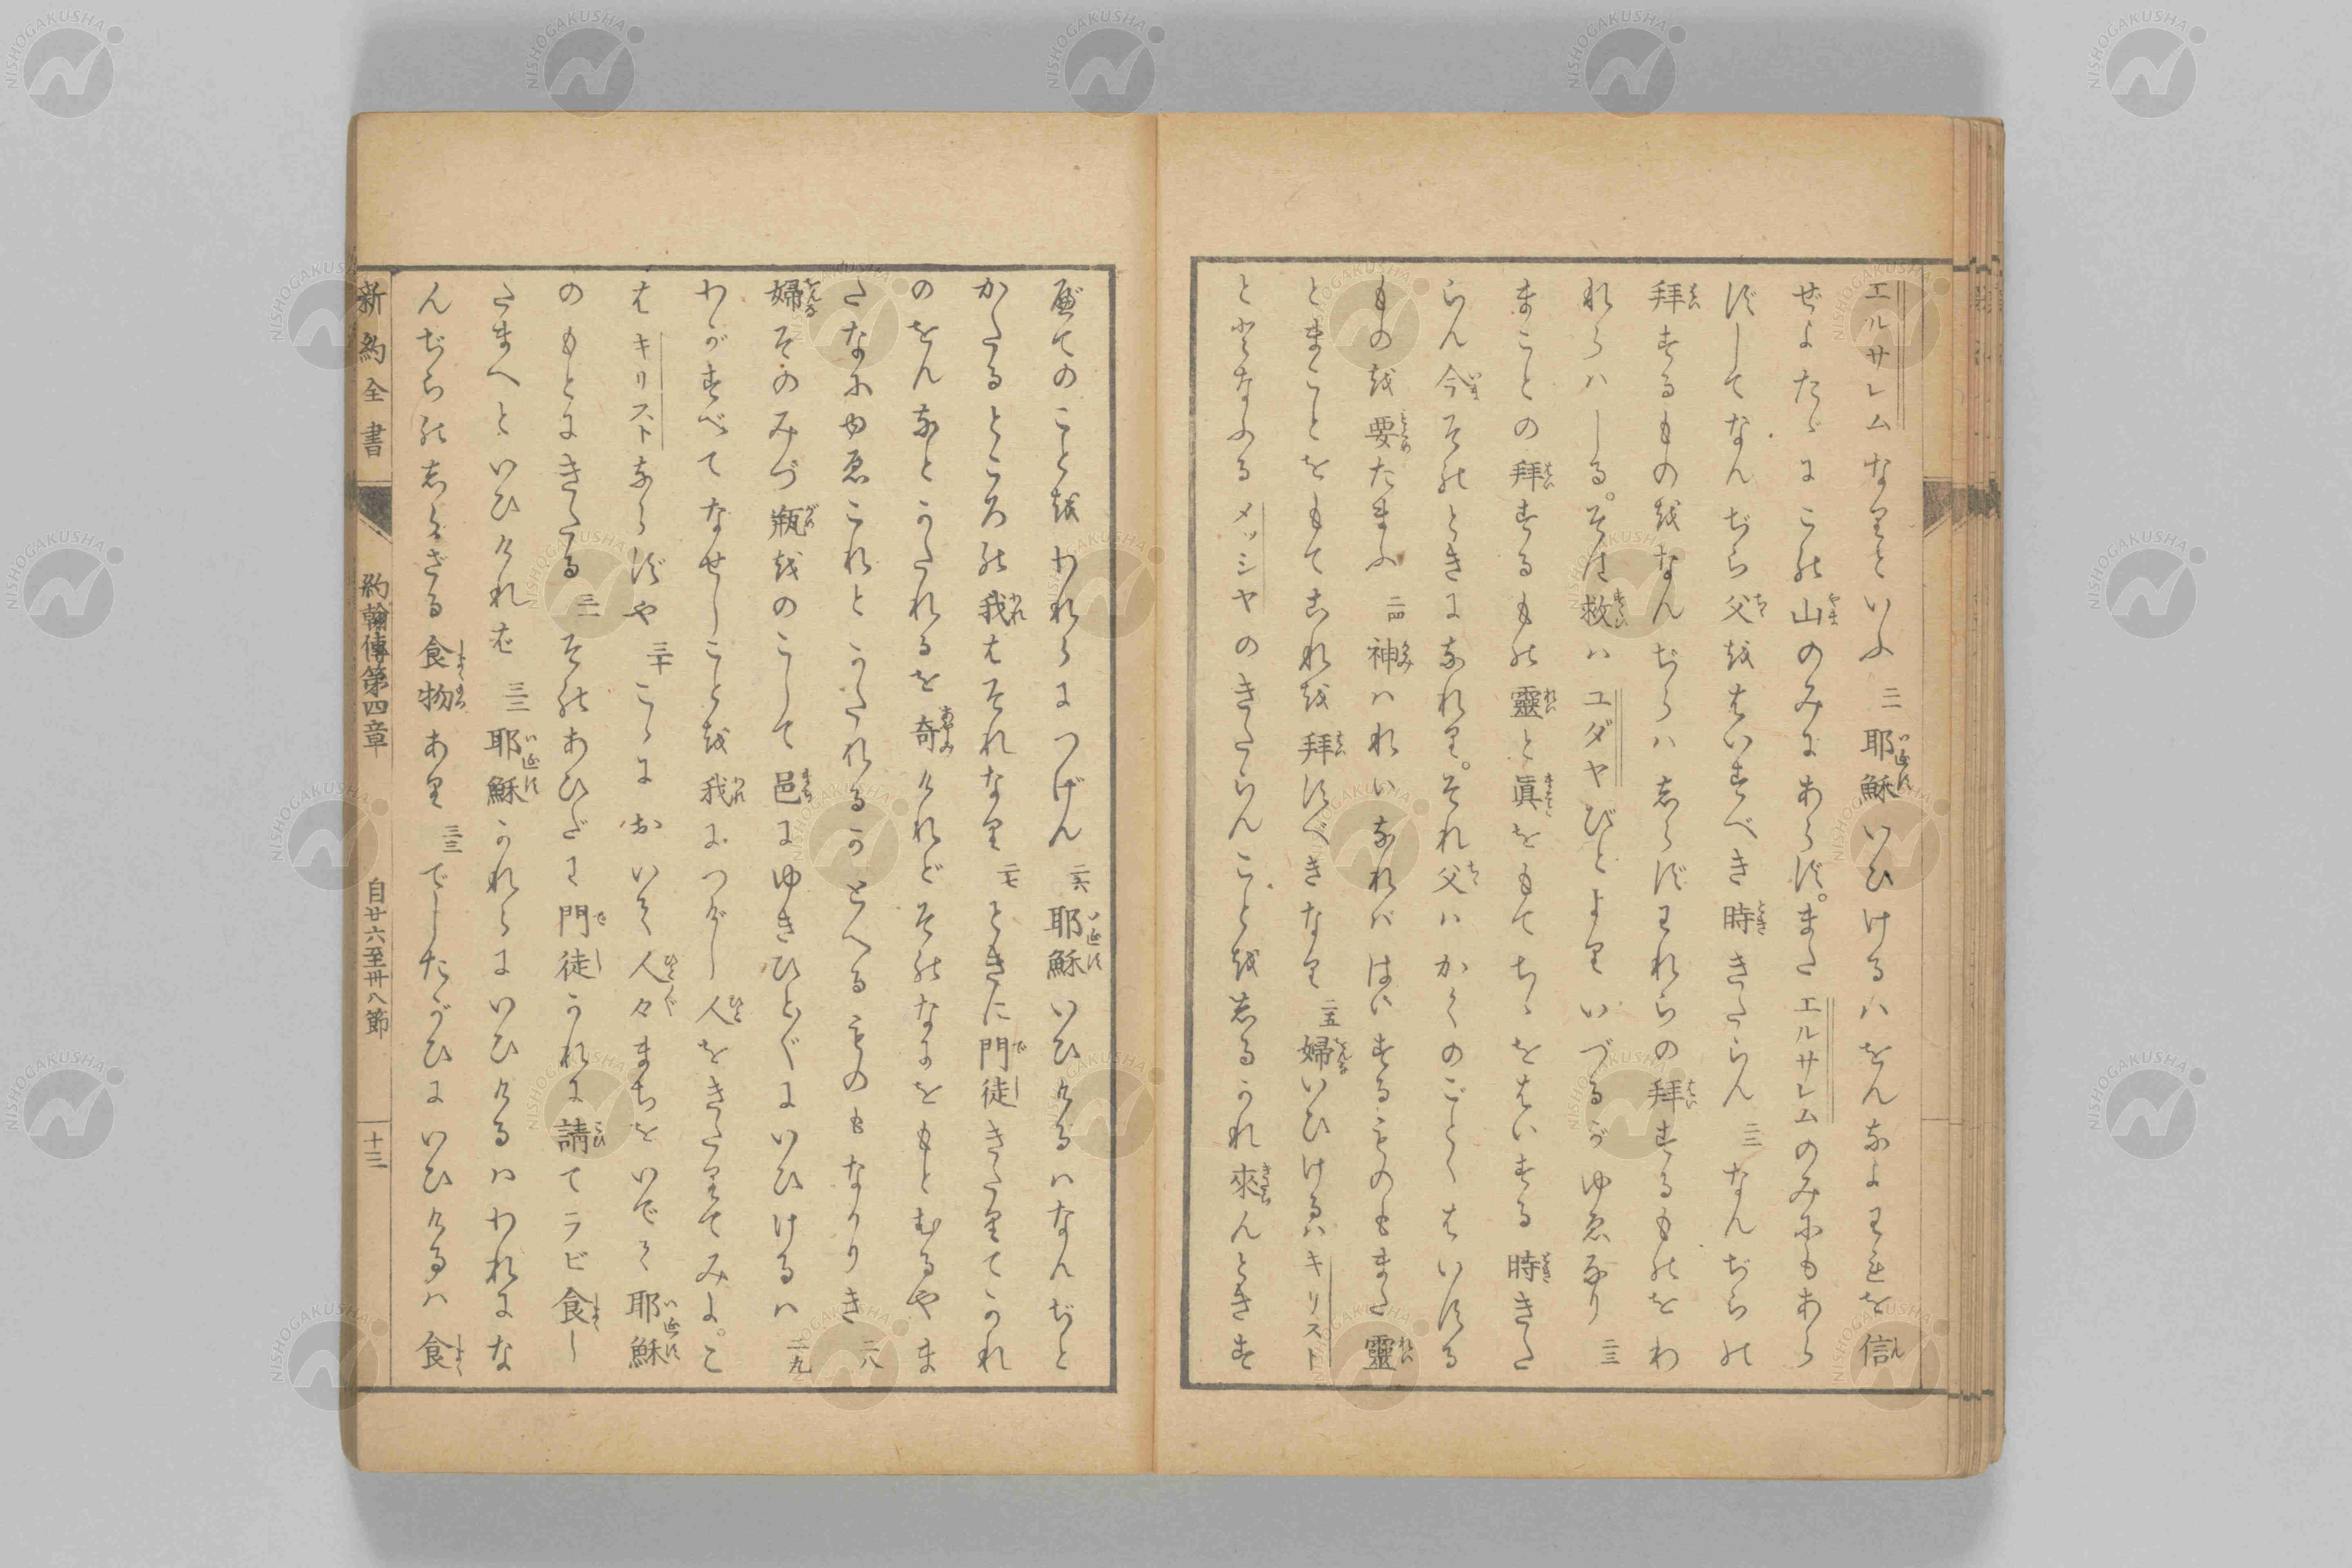 エルサレムなりといふ 二一 耶穌いひけるハをんなよわれを信
ぜよたゞにこの山のみにあらず。またエルサレムのみにもあら
ずしてなんぢら父をはいすべき時きたらん 二二 なんぢらの
拜するものをなんぢらハしらずわれらの拜するものをわ
れらハしる。そは救ハユダヤびとよりいづるがゆゑなり 二三
まことの拜するもの靈と眞をもてちゝをはいする時きた
らん今そのときになれり。それ父ハかくのごとくはいする
ものを要たまふ 二四 神ハれいなれバはいするものもまた靈
とまことをもてこれを拜すべきなり 二五 婦いひけるハキリスト
ととなふるメッシヤのきたらんことをしるかれ來んときす
べてのことをわれらにつげん 二六 耶穌いひけるハなんぢと
かたるところの我はそれなり 二七 ときに門徒きたりてこのれ
のをんなとかたれるを奇けれどそのなにをもとむるやま
たなにゆゑこれとかたれるかとへるものもなかりき 二八
婦そのみづ瓶をのこして邑にゆきひとびとにいひけるハ 二九
わがすべてなせしことを我につげし人をきたりてみよ。こ
はキリストならずや 三十 こゝにおいて人々まちをいでゝ耶穌
のもとにきたる 三一 そのあひだに門徒かれに請てラビ食し
たまへといひければ 三二 耶穌かれらにいひけるハわれにな
んぢらのしらざる食物あり 三三 でしたがひにいひけるハ食
新約全書 約翰傳第四章 自廿六至卅八節 十三